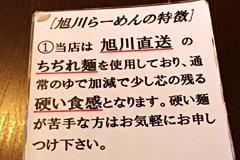 [旭川らーめんの特徴]
①当店は 旭川直送 の
ちぢれ麺を使用しており、通
常のゆで加減で少し芯の残る
硬い食感となります。硬い麺
が苦手な方はお気軽にお申し
つけ下さい。